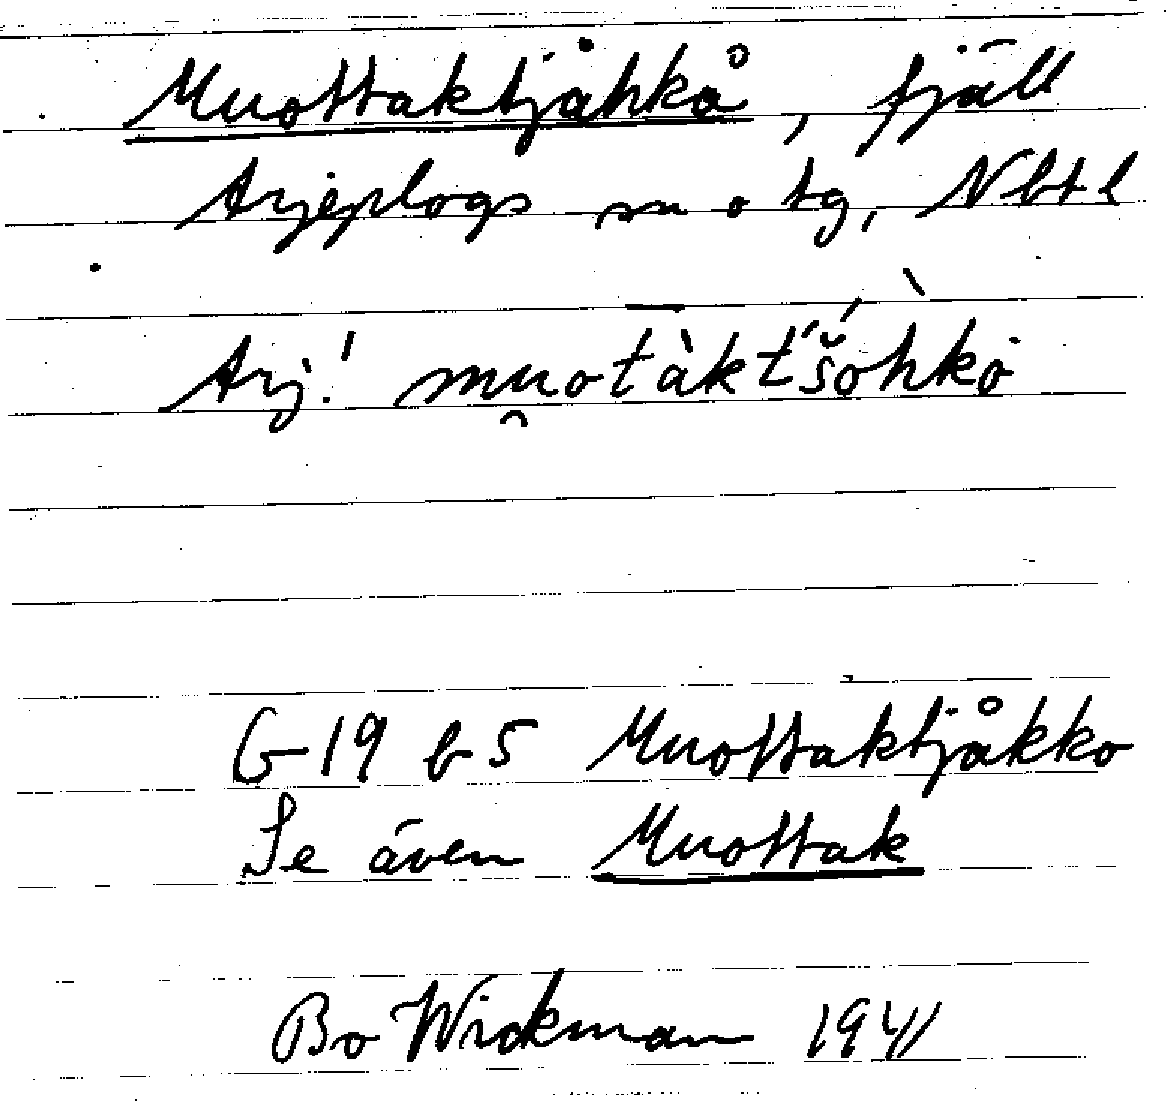 Muottaktjåhkå, fjäll
Arjeplogs sn o tg, Nbt l
Arj! muotàkt́šohkò
G 19 b 5 Muottaktjåkko
Se även Muottak
Bo Wickman 1941